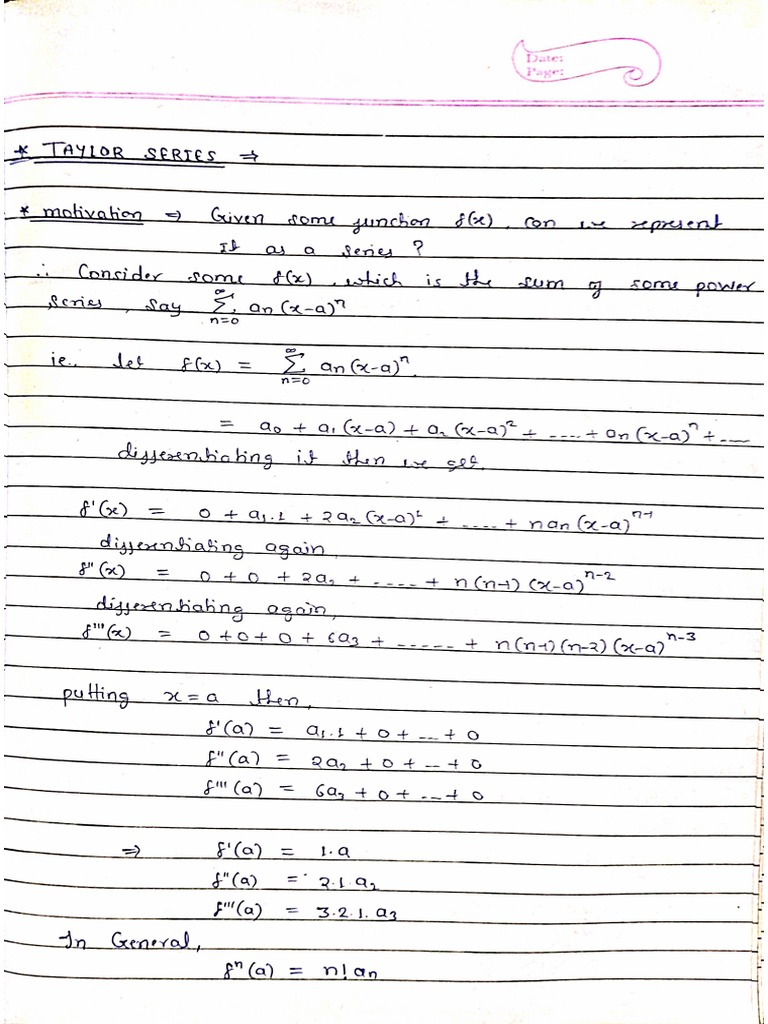 Date:
Page:
* TAYLOR SERIES ⇒
* motivation ⇒ Given some function f(x), can we represent
it as a series ?
∴ Consider some f(x), which is the sum of some power
series, say ∑_{n=0}^{∞} an (x-a)^n
ie., let f(x) = ∑_{n=0}^{∞} an (x-a)^n.
= a₀ + a₁ (x-a) + a₂ (x-a)² + ..... + an (x-a)^n + .....
differentiating it then we get.
f'(x) = 0 + a₁.1 + 2a₂ (x-a)¹ + ..... + n an (x-a)^{n-1}
differentiating again,
f''(x) = 0 + 0 + 2a₂ + ..... + n (n-1) (x-a)^{n-2}
differentiating again,
f'''(x) = 0 + 0 + 0 + 6a₃ + ..... + n (n-1) (n-2) (x-a)^{n-3}
putting x = a then,
f'(a) = a₁.1 + 0 + ... + 0
f''(a) = 2a₂ + 0 + ... + 0
f'''(a) = 6a₃ + 0 + ... + 0
⇒ f'(a) = 1.a
f''(a) = 2.1.a₂
f'''(a) = 3.2.1.a₃
In General,
f^n (a) = n! an